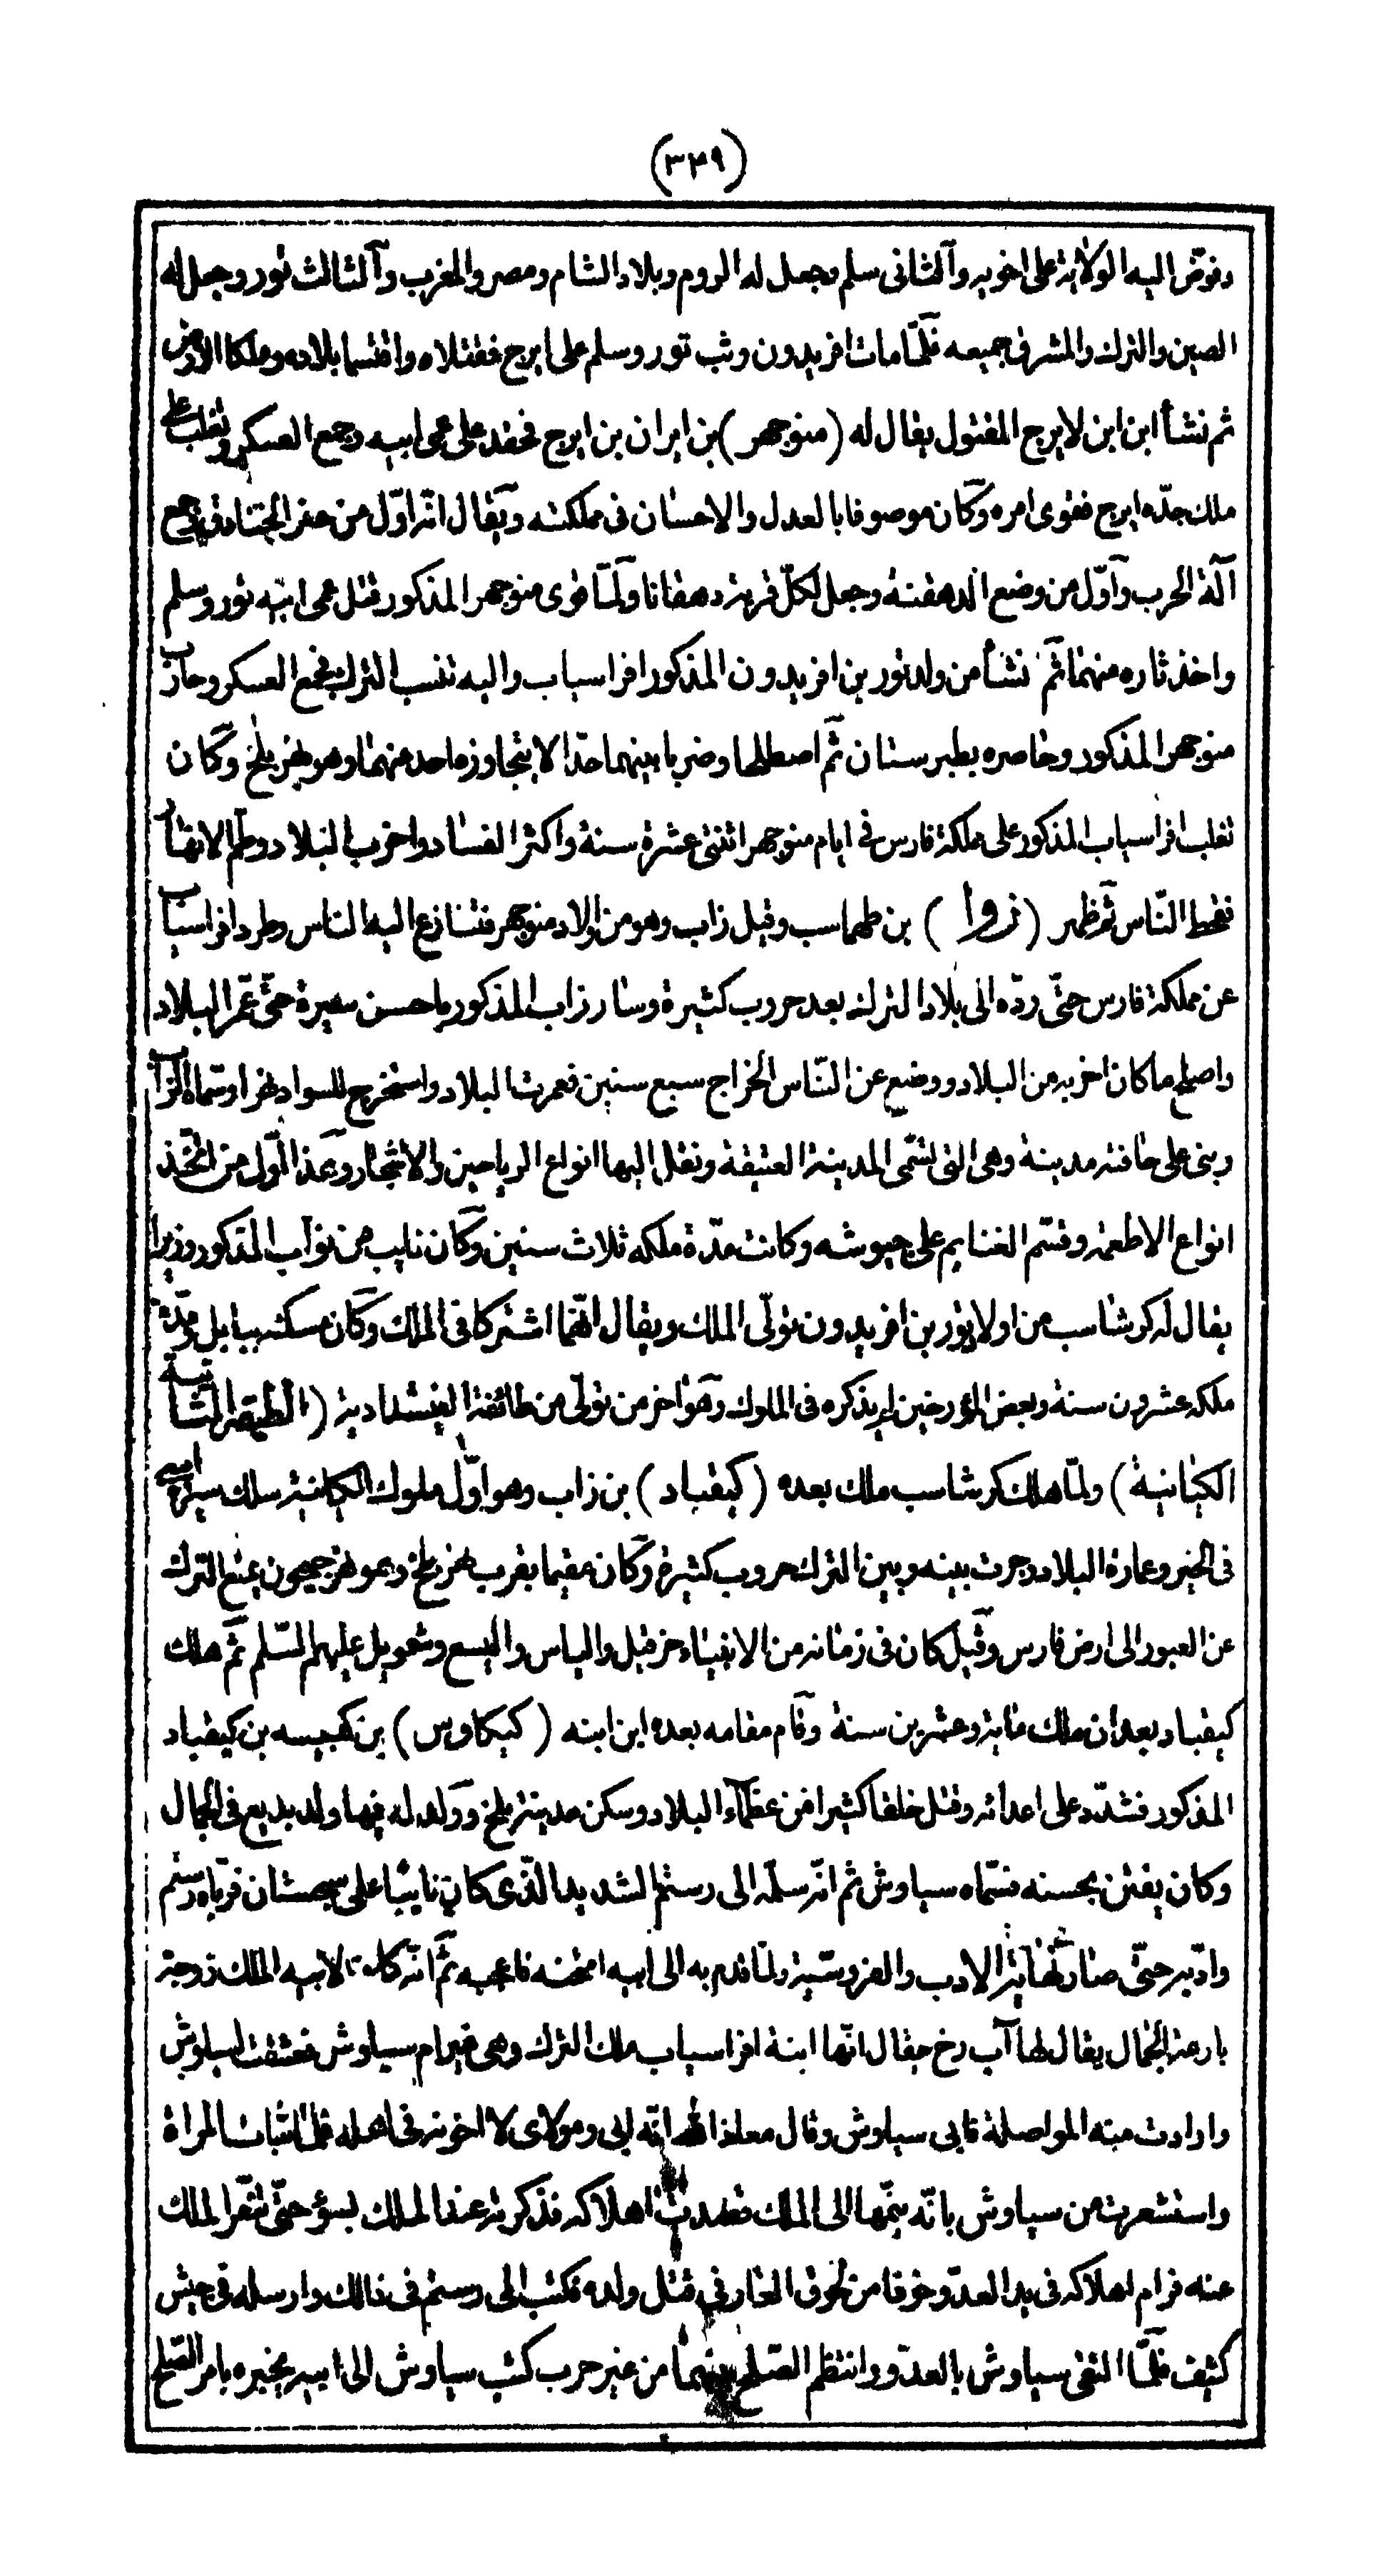 (٣٣٩)
وفوّض اليه الولاية على اخويه وآلثانى سلم وجعل له الروم وبلاد الشام ومصر والمغرب وآلثالث تور وجعل له
الصين والترك والمشرق جميعه فلّما مات افريدون وثب تور وسلم على ايرج فقتلاه واقتسما بلاده وملكا الارض
ثم نشأ ابن ابن لايرج المقتول يقال له (منوجهر) بن ايران بن ايرج فحقد على عمى ابيه وجمع العسكر وتغلب على
ملك جدّه ايرج فقوى امره وكان موصوفا بالعدل والاحسان فى مملكته ويقال انّه اوّل من حفر الخنادق وجمع
آلة الحرب وآوّل من وضع الدهقنة وجعل لكلّ قرية دهقانا ولّما قوى منوجهر المذكور قتل عمى ابيه تور وسلم
واخذ ثاره منهما ثمّ نشأ من ولد تور بن افريدون المذكور افراسياب واليه تنسب الترك فجمع العسكر وحارب
منوجهر المذكور وحاصره بطبرستان ثمّ اصطلحا وضربا بينهما حدّا لا يتجاوزه احد منهما وهو نهر بلخ وكان
تغلب افراسياب المذكور على مملكة فارس فى ايام منوجهر اثنتى عشرة سنة واكثر الفساد واخرب البلاد وطّم الانهار
فقحط النّاس ثمّ ظهر (زوا) بن طهماسب وقيل زاب وهو من اولاد منوجهر فتنازع اليه الناس وطرد افراسياب
عن مملكة فارس حتّى ردّه الى بلاد الترك بعد حروب كثيرة وسار زاب المذكور باحسن سيرة حتّى عمّر البلاد
واصلح ما كان اخربه من البلاد ووضع عن النّاس الخراج سبع سنين فعمرت البلاد واستخرج للسواد نهرا وسمّاه الزاب
وبنى على حافته مدينة وهى التى تسّمى المدينة العتيقة ونقل اليها انواع الرياحين والاشجار وهذا اوّل من اتّخذ
انواع الاطعمة وقسّم الغنايم على جيوشه وكانت مدّة ملكه ثلاث سنين وكان نايب من نوّاب المذكور وزيرا
يقال له كرشاسب من اولاد تور بن افريدون تولّى الملك ويقال انّهما اشتركا فى الملك وكان مسكنه ببابل ومدّة
ملكه عشرون سنة وبعض المؤرخين لم يذكره فى الملوك وهو اخر من تولّى من طائفة الفيشدادية (الطبقة الثانية
الكيانية) ولمّا هلك كرشاسب ملك بعده (كيقباد) بن زاب وهو اوّل ملوك الكيانية سلك سيرة ابيه
فى الخير وعمارة البلاد وجرت بينه وبين الترك حروب كثيرة وكان مقيما بقرب نهر بلخ وهو نهر جيحون يمنع الترك
عن العبور الى ارض فارس وقيل كان فى زمانه من الانبياء حزقيل والياس واليسع وشمويل عليهم السّلم ثمّ هلك
كيقباد بعد ان ملك مائة وعشرين سنة وقام مقامه بعده ابن ابنه (كيكاوس) بن كيبيسه بن كيقباد
المذكور فشدّد على اعدائه وقتل خلقا كثيرا من عظمآء البلاد وسكن مدينة بلخ وولد له فيها ولد بديع فى الجمال
وكان يفتن بحسنه فسّماه سياوش ثم انّه سلّمه الى رستم الشديد الّذى كان نايبا على سجستان فربّاه رستم
وادّبه حتّى صار نهاية الادب والفروسيّة ولمّا قدم به الى ابيه امتحنه فاعجبه ثمّ انّه كان لابيه الملك زوجة
بارعة الجمال يقال لها آب رخ ويقال انّها ابنة افراسياب ملك الترك وهى غير ام سياوش فعشقت سياوش
وارادت منه المواصلة فابى سياوش وقال معاذ الله انّه ابى ومولاى لا اخونه فى اهله فلّما ايست المراة
واستشعرت من سياوش بانّه ينمّها الى الملك فعمدت اهلاكه فذكرته عند الملك بسؤ حتّى تغّير الملك
عنه فرام اهلاكه فى يد العدّو خوفا من لحوق العار فى قتل ولده فكتب الى رستم فى ذلك وارسله فى جيش
كثيف فلمّا التقى سياوش بالعدّو وانتظم الصّلح بينهما من غير حرب كتب سياوش الى ابيه يخبره بامر الصّلح